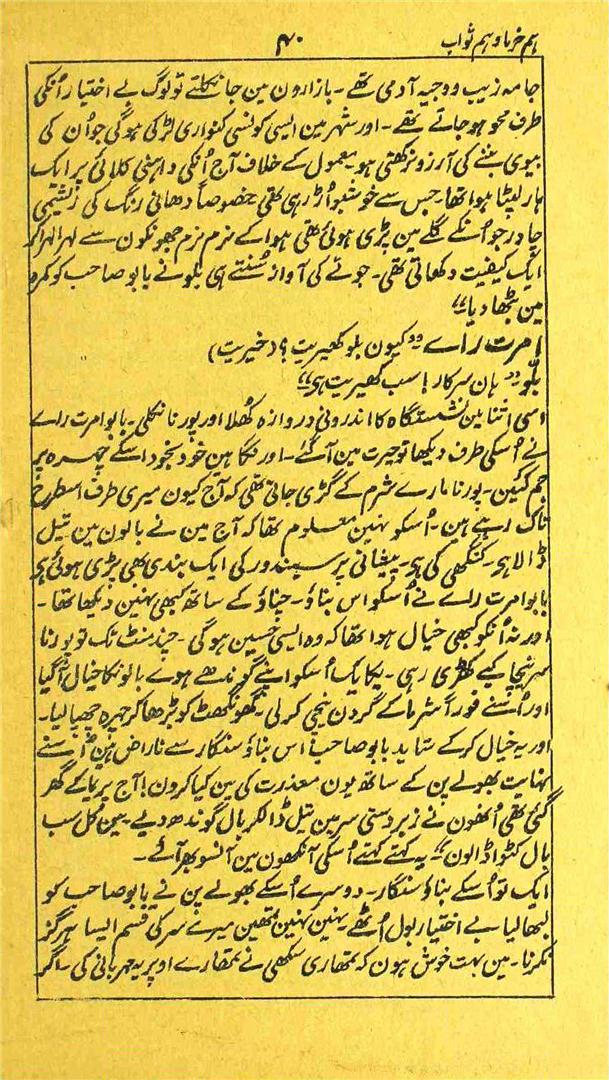 ہم خرما و ہم ثواب
۴۰
جامہ زیب و وجیہ آدمی تھے۔ بازارون مین جا نکلتے تو لوگ بے اختیار اُنکی
طرف محو ہو جاتے تھے۔ اور شہر مین ایسی کونسی کنواری لڑکی ہوگی جو اُن کی
بیوی بننے کی آرزو نہ رکھتی ہو۔ معمول کے خلاف آج اُنکی داہنی کلائی پر ایک
ہار لپٹا ہوا تھا۔ جس سے خوشبو اُڑ رہی تھی خصوصاً دھانی رنگ کی ریشمی
چادر جو اُنکے گلے مین پڑی ہوئی تھی ہوا کے نرم نرم جھونکون سے لہرا لہرا کر
ایک کیفیت دکھاتی تھی۔ جوتے کی آواز سُنتے ہی بلو نے بابو صاحب کو کمرہ
مین بٹھا دیا‘‘
امرت راے ’’کیون بلو کھیریت؟ (خیریت)
بلّو ’’ہان سرکار! سب کھیریت ہی‘‘
اسی اثنا مین نشستگاہ کا اندرونی دروازہ کھُلا اور پورنا نکلی۔ بابو امرت راے
نے اُسکی طرف دیکھا تو حیرت مین آگئے۔ اور نگاہین خود بخود اُسکے چہرہ پر
جم گئین۔ پورنا مارے شرم کے گڑی جاتی تھی کہ آج کیون میری طرف اسطرح
تاک رہے ہین۔ اُسکو نہین معلوم تھا کہ آج مین نے بالون مین تیل
ڈالا ہی۔ کنگھی کی ہی۔ پیشانی پر سیندور کی ایک بندی بھی پڑی ہوئی ہی
بابو امرت راے نے اُسکو اس بناؤ۔ چناؤ کے ساتھ کبھی نہین دیکھا تھا۔
اور نہ اُنکو کبھی خیال ہوا تھا کہ وہ ایسی حسین ہوگی۔ چند منٹ تک تو پورنا
سر نیچا کیے کھڑی رہی۔ یکایک اُسکو اپنے گوندھے ہوے بالونکا خیال آگیا
اور اُسنے فوراً شرما کے گردن نیچی کر لی۔ گھونگھٹ کو بڑھا کر چہرہ چھپا لیا۔
اور یہ خیال کرکے شاید بابو صاحب اس بناؤ سنگار سے ناراض ہین اُسنے
نہایت بھولے پن کے ساتھ یون معذرت کی مین کیا کرون! آج پریما کے گھر
گئی تھی اُنھون نے زبردستی سر مین تیل ڈالکر بال گوندھ دیے۔ مین کل سب
بال کٹوا ڈالون‘‘۔ یہ کہتے کہتے اُسکی آنکھون مین آنسو بھر آئے۔
ایک تو اُسکے بناؤ سنگار۔ دوسرے اُسکے بھولے پن نے بابو صاحب کو
لبھا لیا۔ بے اختیار بول اُٹھے۔ نہین نہین تمھین میرے سر کی قسم ایسا ہرگز
نکرنا۔ مین بہت خوش ہون کہ تمھاری سکھی نے تمھارے اوپر یہ مہربانی کی۔ اگر